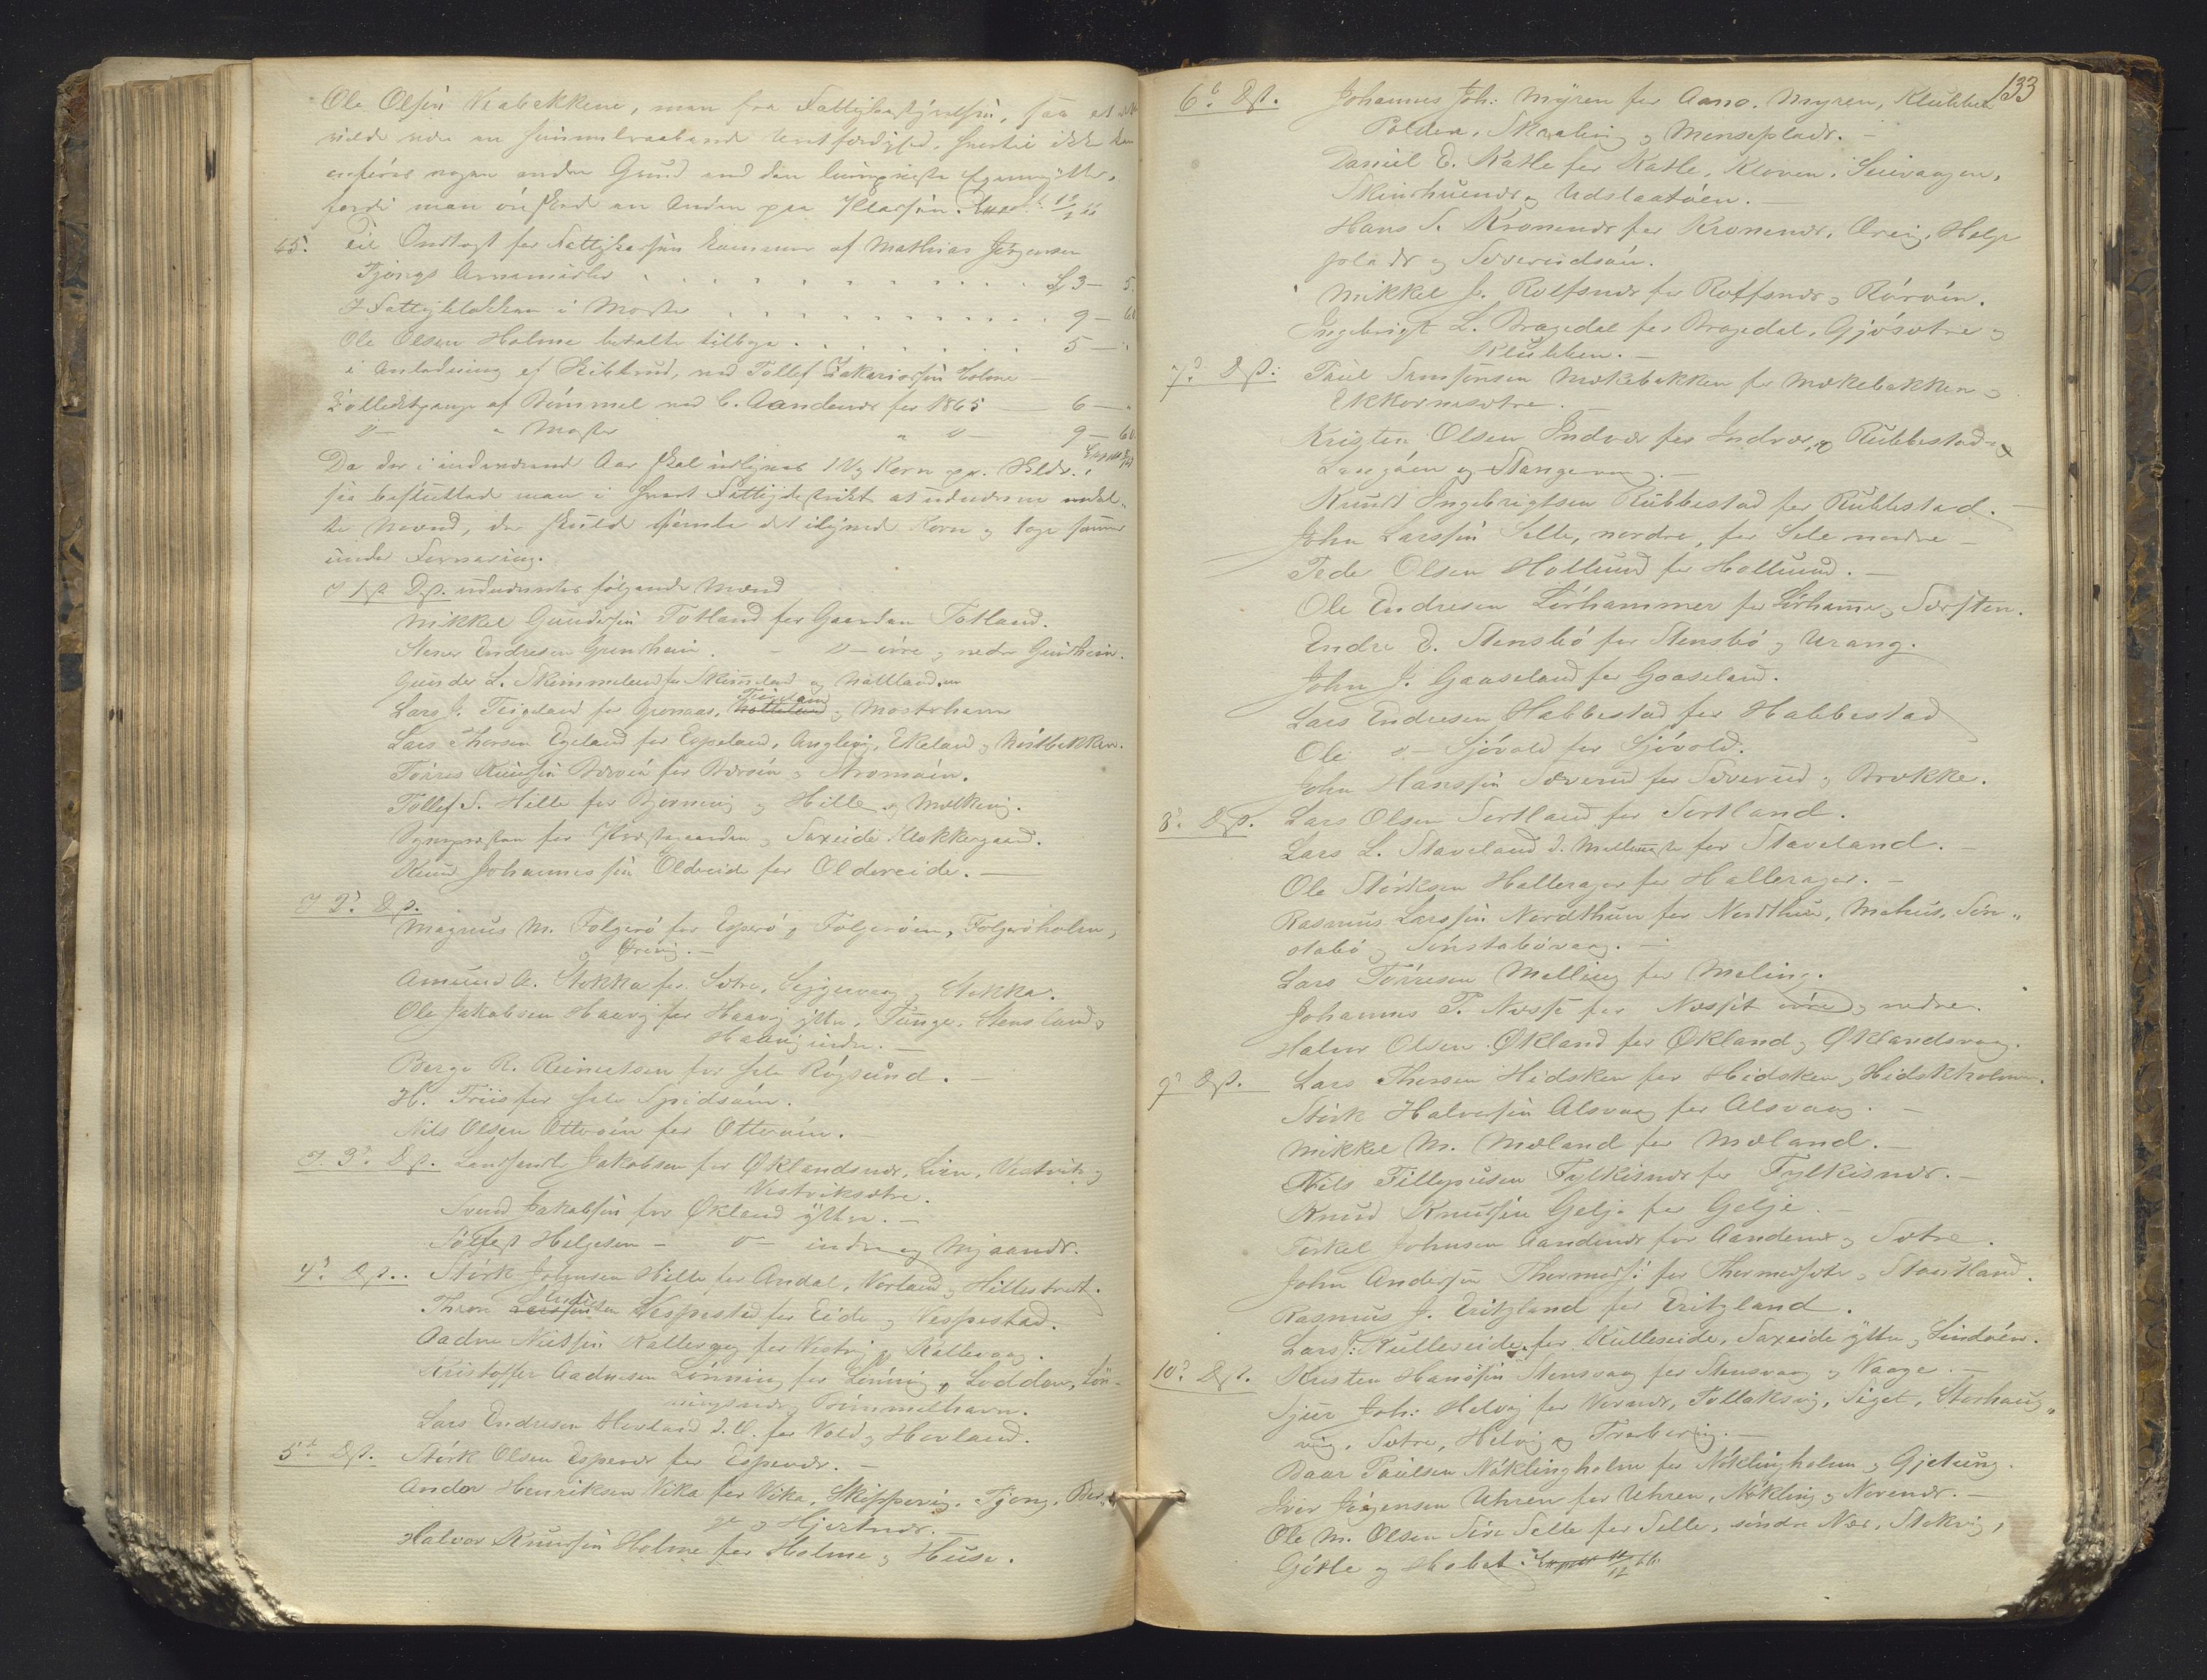 Ole Olsen Viabakkene, men fra Fattigbestyrelsen, saa at
vilde være en himmelraabende Uretfærdighed, hvortil ikke kan
anføres nogen anden Grund end den
fordi man ønskede en Anden paa Pladsen. Exped. 12/2 66
65. Til Indtægt for Fattigkassen kommer af Mathias Jørgensen
Tjongs 3 — 5.
I Fattigblokken i Moster 9 — 60
Ole Olsen Holme betalte tilbage 5 —
i Anledning af Skibbrud, ved Tollef Zakariassen Holme —
af Bömmel ved C. Aandenes for 1865 — 6 —
" Moster " 9 — 60.
Da der i indeværende Aar skal udlignes Korn pr.
saa besluttede man i hvert Fattigdistrikt at udnævne
te Mænd, der skulde samle det udlignede Korn og tage samme
under Forvaring.
I 1ste Dst. udnævntes følgende Mænd
Mikkel Gundersen Totland for Gaarden Totland.
Stener Endresen Grindheim. — övre og nedre Grindheim.
Gunder L. Skimmeland for Skimmeland og Nattland.
Lars J. Teigeland for Gronaas, Teigeland og Mosterhavn
Lars Thorsen Egeland for Espeland, Anglevig, Ekeland og
Tørres Knudsen for og
Tollef S. Hille for og Hille og
for Præstegaarden og Saxeide Klokkergaard.
Knud Johannessen Oldereide for Oldereide. —
I 2d. Dst.
Magnus M. Folgerö for Esperö, Folgeröen, Folgeröholm,
og
Amund A. Stokka for Sætre, Siggervaag og Stokka.
Ole Jakobsen Haavig for Haavig ytre, Tunge, Stensland og
Haavig indre. —
Berge R. Reinertsen for hele Rögsund. —
H. Friis for hele Spidsöen.
Nils Olsen Otteröen for Otteröen. —
I. 3d. Dst. Lensmand Jakobsen for Øklandsnes, Lien, Vestvik og
Vestviksætre.
Svend Jakobsen for Økland ytre. —
Sölfest Helgesen — indre og Mjaanes.
4d. Dst. Störk Johnsen Hille for Andal, Vorland og Hillestvedt.
Thore Endresen Vespestad for Eide og Vespestad.
Aadne Nielsen Kallevaag for Vestvig og Kallevaag.
Kristoffer Aadnesen Lönning for Lönning, Lodden, Lön-
ningsnes og Bömmelhavn.
Lars Endresen Hovland d. Æ. for Vold og Hovland.
5te Dst. Störk Olsen Espenes for Espenes. —
Anders Henriksen Vika for Vika, Skippervig, Tjong, Ber-
ge og Hjertnes. —
Halvor Knudsen Holme for Holme og Huse.
133
6te Dst. Johannes Joh: Myren for Aano, Myren, Klubben
Polden, Skralevig og Menseplads. —
Daniel D. Katle for Katle, Kloven, Seivaagen,
Skindhuenes og Udslaatöen. —
Hans S. Kronenes for Kronenes, Ørevig, Helge
plads og Sævereidsöen.
Mikkel J. Rolfsnes for Rolfsnes og Röröen.
Ingebrigt L. Dragedal for Dragedal, Gjösætre og
Klubben. —
7d. Dst: Paul Samsonsen Mækebakken for Mækebakken og
Ekkornesætre. —
Kristen Olsen Indvær for Indvær, Rubbestadn
Langöen og Stangevaag. —
Knudt Ingebrigtsen Rubbestad for Rubbestad. —
John Larssen Selle, nordre, for Sele nordre —
Peder Olsen Hollund for Hollund. —
Ole Endresen Lörhammer for Lörhamme og Særsten.
Endre E. Stensbö for Stensbö og Urang.
John J. Gaaseland for Gaaseland.
Lars Endresen Habbestad for Habbestad
Ole — Sjövold for Sjövold.
John Hanssen Sæverud for Sæverud og Brække.
8d. Dst. Lars Olsen Sortland for Sortland.
Lars L. Staveland d. Mellemste for Staveland. —
Ole Störksen Hallerager for Hallerager. —
Rasmus Larssen Nordthun for Nordthun, Mehus, Sön-
stabö og Sönstabövaag. —
Lars Törresen Melling for Meling.
Johannes P. Næsse for Næsset övre og nedre.
Halvor Olsen Økland for Økland og Øklandsvaag.
9d. Dst. Lars Thorsen Hidsken for Hidsken og Hidskholmen.
Störk Halvorsen Alsvaag for Alsvaag. —
Mikkel M. Mæland for Mæland. —
Nils Fillipusen Fylkesnes for Fylkesnes. —
Knud Knudsen Gelje for Gelje. —
Torkel Johnsen Aandenes for Aandenes og Sætre.
John Andersen Thormodsæ: for Thormodsæter og Stautland.
Rasmus J. Eritzland for Eritzland.
Lars: Kulleseide for Kulleseide, Saxeide ytre og Lindöen.
10d. Dst. Kristen Hanssen Stensvaag for Stensvaag og Vaage. —
Sjur Joh: Helvig for Vornes, Tollaksvig, Siget, Storhaug-
vig, Sætre, Helvig og Trærevig. —
Baar Paulsen Nöklingholm for Nöklingholm og Gjetung.
Iver Jörgensen Uhren for Uhren, Nökling og Norenes. —
Ole M. Olsen Söre Selle for Selle, söndre Næs, Stokvig,
Götle og Hobet. Exped 11/12 66.